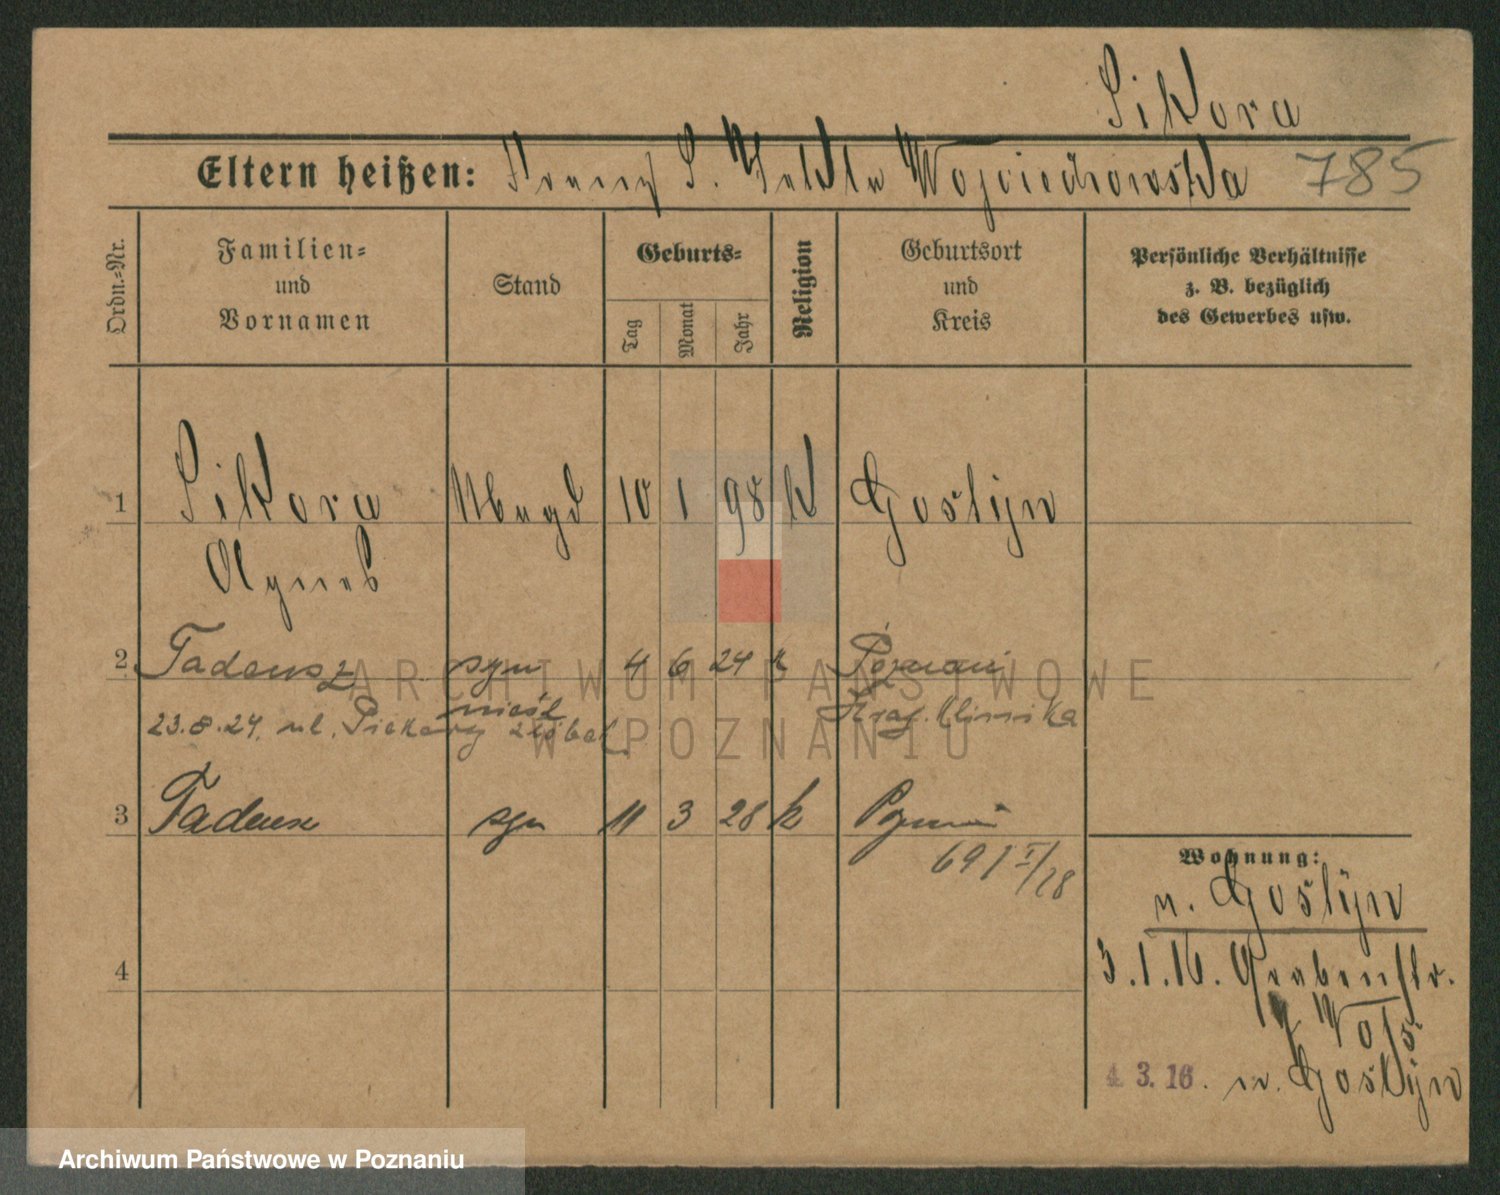 Sikora
Eltern heißen: Franz S. Thekla Wojciechowska 785
Ordn.=Nr.
Familien=
und
Vornamen
Stand
Geburts=
Tag
Monat
Jahr
Religion
Geburtsort
und
Kreis
Persönliche Verhältnisse
z. B. bezüglich
des Gewerbes usw.
1 Sikora Magd 10 1 98 k Gostijn
Agnes
2 Tadeusz syn 4 6 24 k Poznań
nieśl Kraj. Klinika
23.8.24. ul. Piekary żłobek.
3 Tadeusz syn 11 3 28 k Poznań
691 I/28
4
Wohnung:
n. Gostijn
3.1.16. Grabenstr.
4.3.16. n. Gostijn
ARCHIWUM PAŃSTWOWE
W POZNANIU
Archiwum Państwowe w Poznaniu